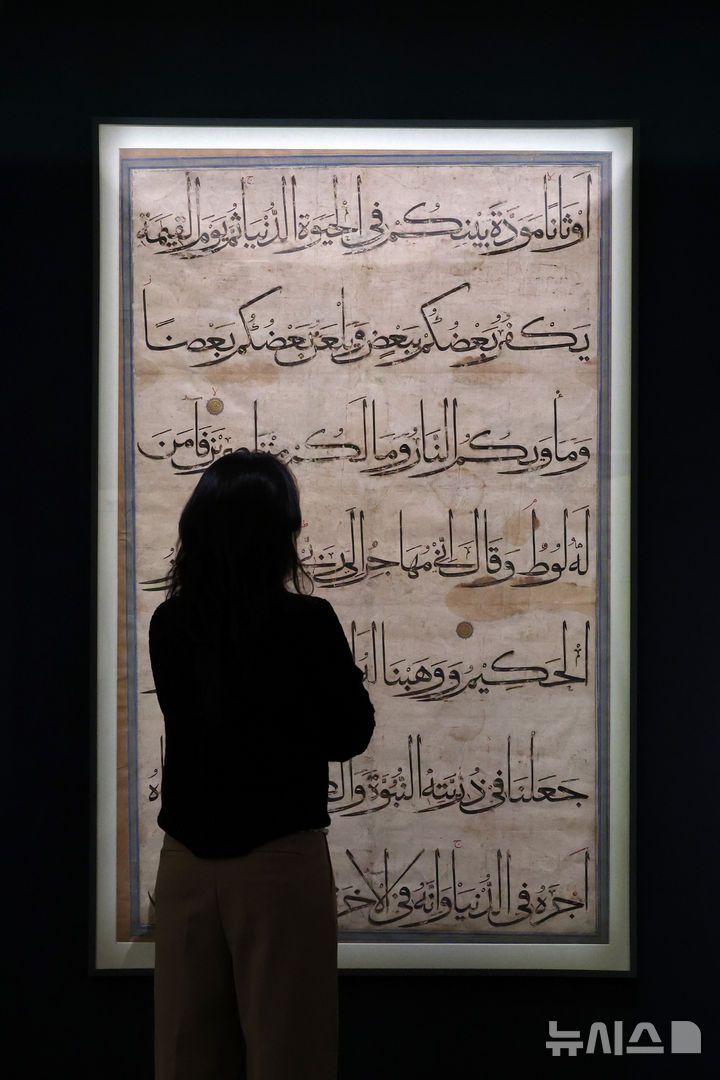 أَوْثَانًا مَوَدَّةَ بَيْنِكُمْ فِي الْحَيٰوةِ الدُّنْيَا ثُمَّ يَوْمَ الْقِيٰمَةِ
يَكْفُرُ بَعْضُكُمْ بِبَعْضٍ وَيَلْعَنُ بَعْضُكُمْ بَعْضًا
وَمَأْوٰىكُمُ النَّارُ وَمَا لَكُمْ مِنْ نَاصِرِينَ فَآمَنَ
لَهُ لُوطٌ وَقَالَ إِنِّي مُهَاجِرٌ إِلَى
الْحَكِيمُ وَوَهَبْنَا لَهُ
جَعَلْنَا فِي ذُرِّيَّتِهِ النُّبُوَّةَ
أَجْرَهُ فِي الدُّنْيَا وَإِنَّهُ فِي
뉴시스